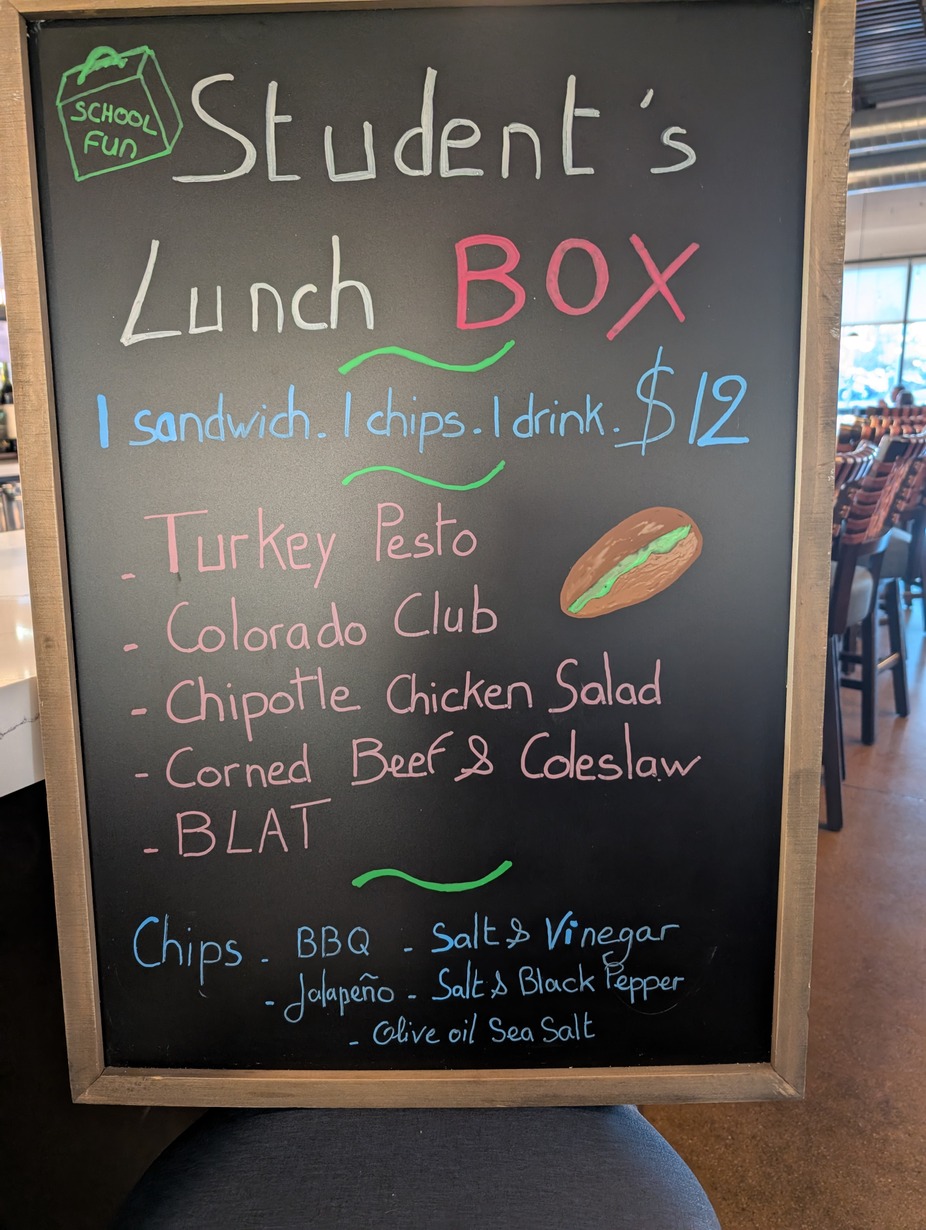 SCHOOL
FUN
Student's
Lunch BOX
1 sandwich. 1 chips. 1 drink. $12
- Turkey Pesto
- Colorado Club
- Chipotle Chicken Salad
- Corned Beef & Coleslaw
- BLAT
Chips - BBQ - Salt & Vinegar
- Jalapeño - Salt & Black Pepper
- Olive oil Sea Salt